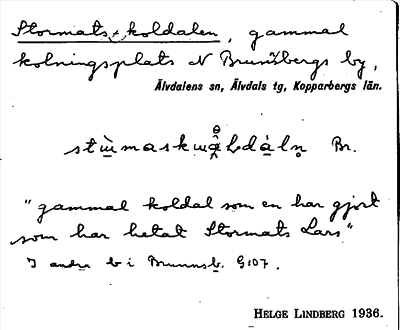 Stormats koldalen, gammal
kolningsplats N Brunnbergs by,
Älvdalens sn, Älvdals tg, Kopparbergs län.
Br.
"gammal koldal som en har gjort
som har hetat Stormats Lars"
I andra b i Brunnsb. G107.
HELGE LINDBERG 1936.